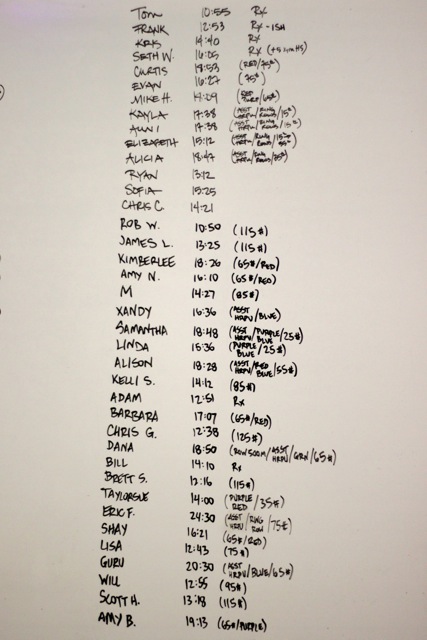 Tom 10:55 Rx
FRANK 12:53 Rx - 15#
KRIS 14:40 Rx
SETH W. 16:05 Rx
CURTIS 18:53 (RED/75#)
EVAN 16:27 (75#)
MIKE H. /65#)
KAYLA 17:38 (ASST HRPU/RING ROWS/15#)
17:38 (ASST HRPU/RING ROWS/15#)
ELIZABETH 15:12 (ASST HRPU/RING ROWS/
ALICIA 18:47 (ASST HRPU/RING ROWS/35#)
RYAN 13:12
SOFIA 15:25
CHRIS C. 14:21
ROB W. 10:50 (115#)
JAMES L. 13:25 (115#)
KIMBERLEE 18:26 (65#/RED)
AMY N. 16:10 (65#/RED)
M 14:27 (85#)
XANDY 16:36 (ASST HRPU/BLUE)
SAMANTHA 18:48 (ASST HRPU/PURPLE BLUE/25#)
LINDA 15:36 (PURPLE BLUE/25#)
ALISON 18:28 (ASST HRPU/RED BLUE/55#)
KELLI S. 14:12 (85#)
ADAM 12:51 Rx
BARBARA 17:07 (65#/RED)
CHRIS G. 12:38 (125#)
DANA 18:50 (ROW 500M/ASST HRPU/GRN/65#)
BILL 14:10 Rx
BRETT S. 12:16 (115#)
TAYLORSUE 14:00 (PURPLE RED/35#)
ERIC F. 24:30 (ASST HRPU/RING ROW/75#)
SHAY 16:21 (65#/RED)
LISA 12:43 (75#)
GURU 20:30 (ASST HRPU/BLUE/65#)
WILL 12:55 (95#)
SCOTT H. 13:18 (115#)
AMY B. 19:13 (65#/PURPLE)